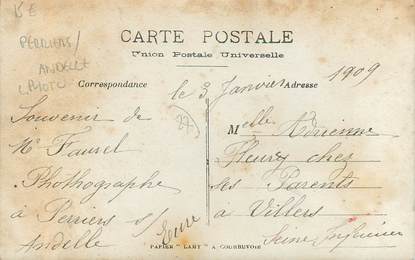 15€
PERRIERS/
ANDELLE
PHOTO
CARTE POSTALE
Union Postale Universelle
Correspondance
Adresse
le 3 Janvier 1909
Souvenir de
Mr Faurel
Phothographe
à Perriers s/
Andelle
Eure
Melle Adrienne
Fleury chez
ses Parents
à Villers
Seine Inférieure
PAPIER "LAMY" A COURBEVOIE